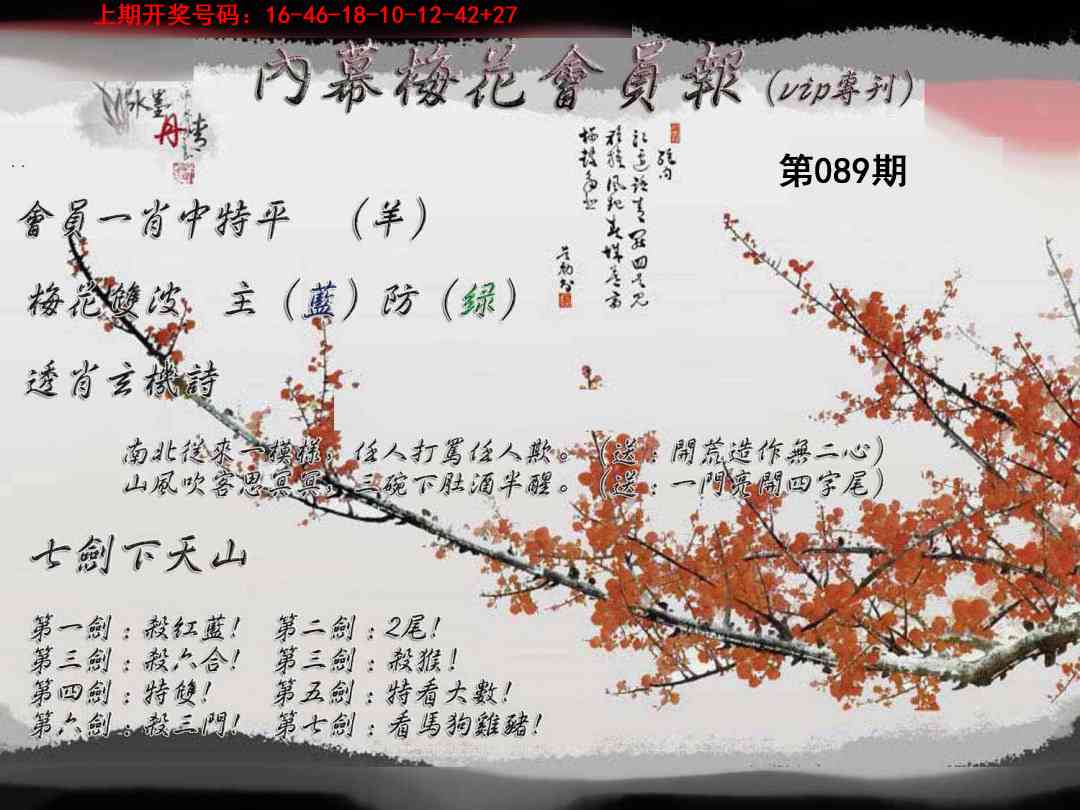 上期开奖号码：16-46-18-10-12-42+27
內幕梅花會員報（vip專刊）
水墨
丹青
第089期
會員一肖中特平 （羊）
梅花雙波 主（藍）防（緑）
透肖玄機詩
南北從來一模樣，任人打罵任人欺。（送：開荒造作無二心）
山風吹客思冥冥，三碗下肚酒半醒。（送：一門亮開四字尾）
七劍下天山
第一劍：殺紅藍！ 第二劍：2尾！
第三劍：殺六合！ 第三劍：殺猴！
第四劍：特雙！ 第五劍：特看大數！
第六劍：殺三門！ 第七劍：看馬狗雞豬！